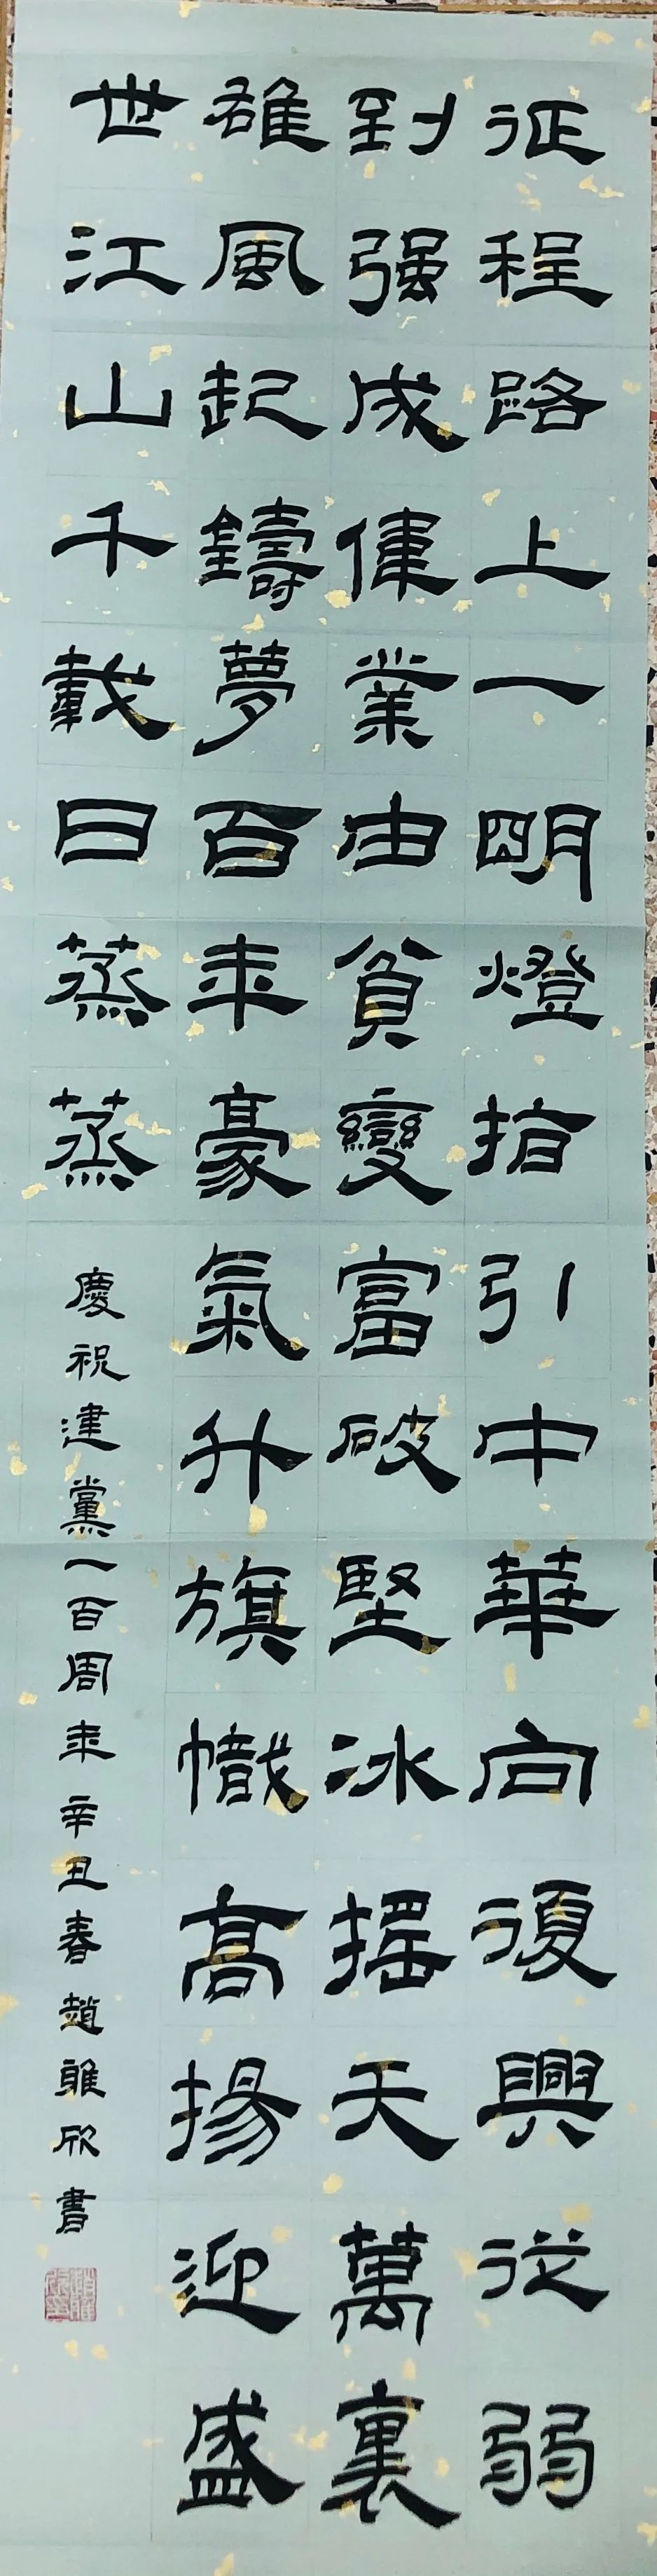 征程路上一明燈指引中華向復興從弱
到强成偉業由貧變富破堅冰摇天萬裏
雄風起鑄夢百年豪氣升旗幟高揚迎盛
世江山千載日蒸蒸
慶祝建黨一百周年辛丑春趙雅欣書